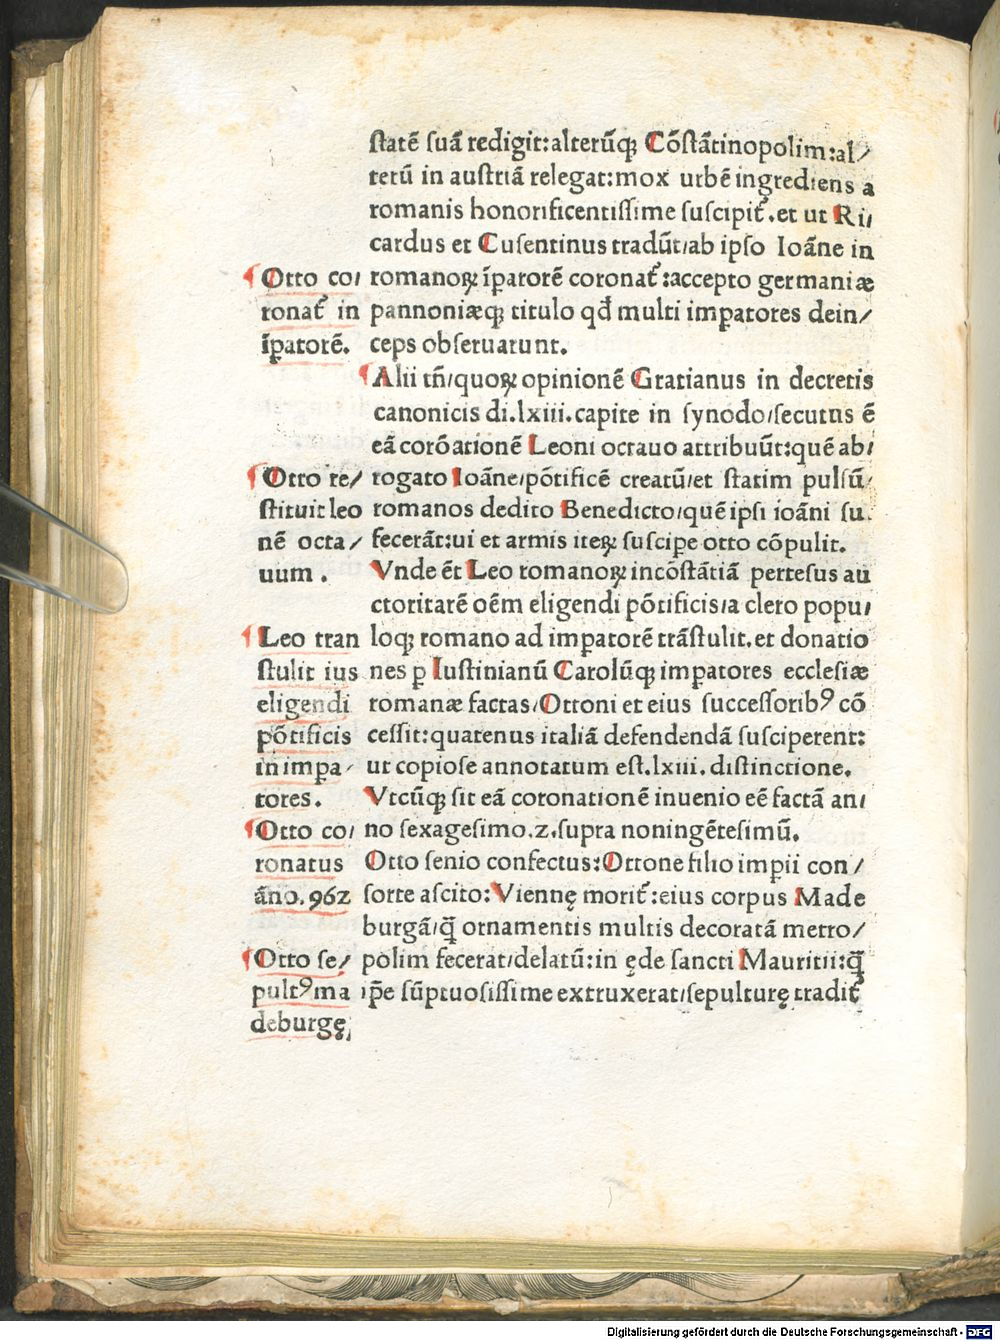 ſtatē ſuā redigit:alterūqꝫ Cōſtātinopolim:al/
terū in auſtriā relegat:mox urbē ingrediens a
romanis honorificentiſſime ſuſcipit᷑.et ut Ri/
cardus et Cuſentinus tradūt/ab ipſo Ioāne in
romanoꝝ īꝑatorē coronat᷑:accepto germaniæ
pannoniæqꝫ titulo qđ multi imꝑatores dein/
ceps obſeruarunt.
Alii tñ/quoꝝ opinionē Gratianus in decretis
canonicis di.lxiii.capite in ſynodo/ſecutus ē
eā corōationē Leoni octauo attribuūt:quē ab/
rogato Ioāne/pōtificē creatū/et ſtatim pulſū/
romanos dedito Benedicto/quē ipſi ioāni ſu.
fecerāt:ui et armis iteꝝ ſuſcipe otto cōpulit.
Vnde ēt Leo romanoꝝ incōſtātiā perteſus au
ctoritatē oēm eligendi pōtificis/a clero popu/
loqꝫ romano ad imꝑatorē trāſtulit.et donatio
nes ꝑ Iuſtinianū Carolūqꝫ imꝑatores eccleſiæ
romanæ factas/Ottoni et eius ſucceſſoribꝰ cō
ceſſit:quatenus italiā defendendā ſuſciperent:
ut copioſe annotatum eſt.lxiii.diſtinctione.
Vtcūqꝫ ſit eā coronationē inuenio eē factā an/
no ſexageſimo.z.ſupra noningēteſimū.
Otto ſenio confectus:Ottone filio imꝑii con/
ſorte aſcito:Viennę morit᷑:eius corpus Made
burgā/q̄ ornamentis multis decoratā metro/
polim fecerat/delatū:in ęde ſancti Mauritii:q̄
ip̄e ſūptuoſiſſime extruxerat/ſepulturę tradit᷑
Otto co/
ronat᷑ in
īꝑatorē.
Otto re/
ſtituit leo
nē octa/
uum.
Leo tran
ſtulit ius
eligendi
pōtificis
in imꝑa/
tores.
Otto co/
ronatus
āno.962
Otto ſe/
pultꝰ ma
deburgę
Digitalisierung gefördert durch die Deutsche Forschungsgemeinschaft - DFG